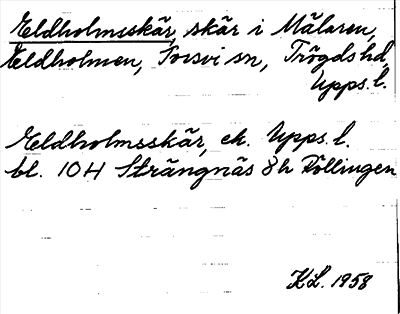 Eldholmsskär, skär i Mälaren,
Eldholmen, Torsvi sn, Trögds hd,
Upps. l.
Eldholmsskär, ek. Upps. l.
bl. 10H Strängnäs 8h Föllingen
KL. 1958